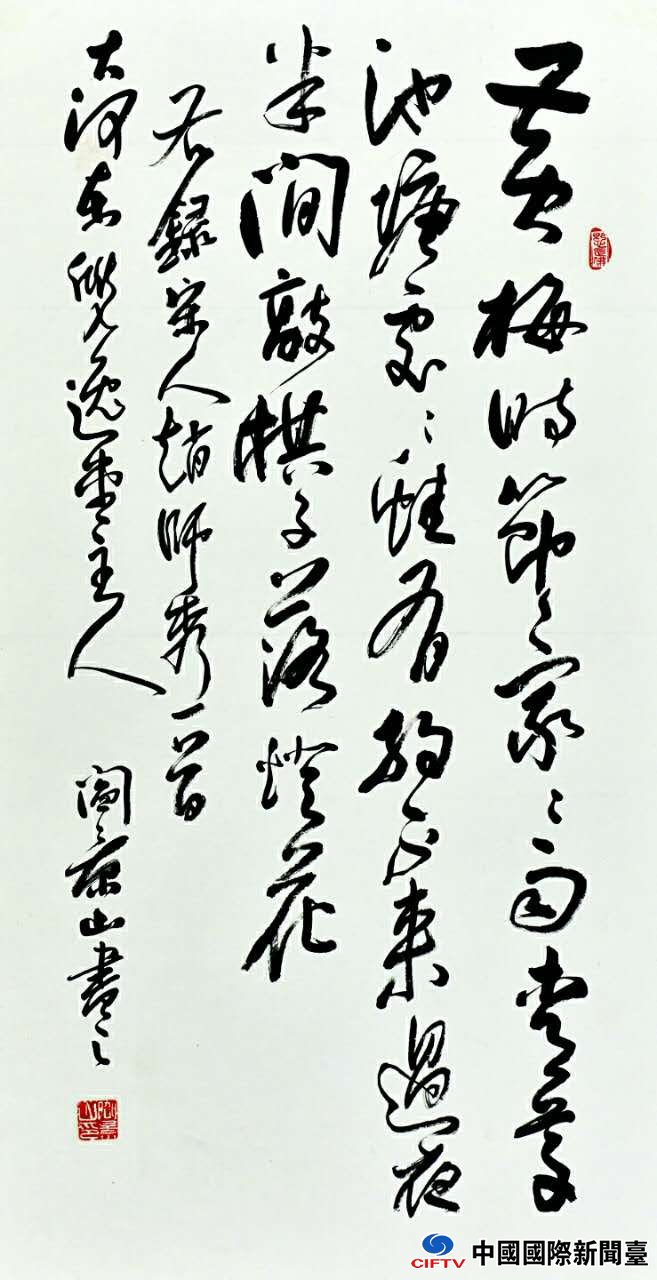 黃梅時節家々雨青草
池塘處々蛙有約不來過夜
半間敲棋子落燈花
右錄宋人趙師秀一首
大河東逸堂主人 閻景山書之
CIFTV 中國國際新聞臺